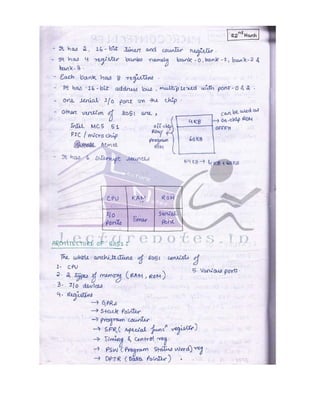 02nd March
- It has 2, 16-bit timer and counter register.
- It has 4 register banks namely bank-0, bank-1, bank-2 &
bank-3.
- Each bank has 8 registers.
- It has 16-bit address bus, multiplexed with port-0 & 2.
- One serial I/O port on the chip
- Other version of 8051 are,
Intel MCS 51
PIC / micro chip
Atmel
off chip
ROM
program
ROM
4KB
60KB
can be used as
→ on-chip ROM
OFFFH
64KB → 4KB + 60KB
- It has 6 interrupt sources
CPU
RAM
ROM
I/O
Ports
Timer
Serial
Port
Lecturenotes.In
ARCHITECTURE OF 8051:
The whole architecture of 8051 consists of
1- CPU
5. Various ports
2- 2 types of memory (RAM, ROM)
3- I/O devices
4- Registers
→ GPRs
→ Stack Pointer
→ program counter
→ SFR (special func^n register)
→ Timing & Control reg.
→ PSW (Program Status Word) reg
→ DPTR (Data Pointer) .